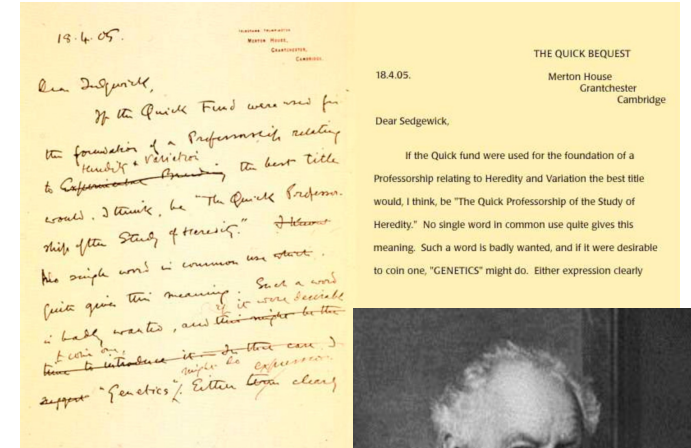 18.4.05.
Merton House,
Grantchester,
Cambridge.
Dear Sedgwick,
If the Quick Fund were used for
the foundation of a Professorship relating
Heredity & Variation
to Experimental Breeding the best title
would, I think, be "The Quick Professor-
ship of the Study of Heredity."
No single word in common use
quite gives this meaning. Such a word
if it were desirable
is badly wanted, and this might be the
to coin one,
time to introduce it — In that case I
might be expression
suggest "Genetics". Either term clearly
THE QUICK BEQUEST
18.4.05.
Merton House
Grantchester
Cambridge
Dear Sedgewick,
If the Quick fund were used for the foundation of a
Professorship relating to Heredity and Variation the best title
would, I think, be "The Quick Professorship of the Study of
Heredity." No single word in common use quite gives this
meaning. Such a word is badly wanted, and if it were desirable
to coin one, "GENETICS" might do. Either expression clearly